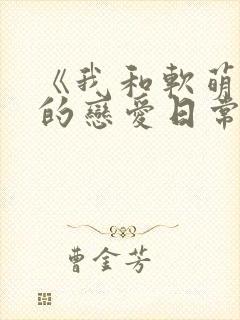 《我和軟萌
的戀愛日常
曹金芳